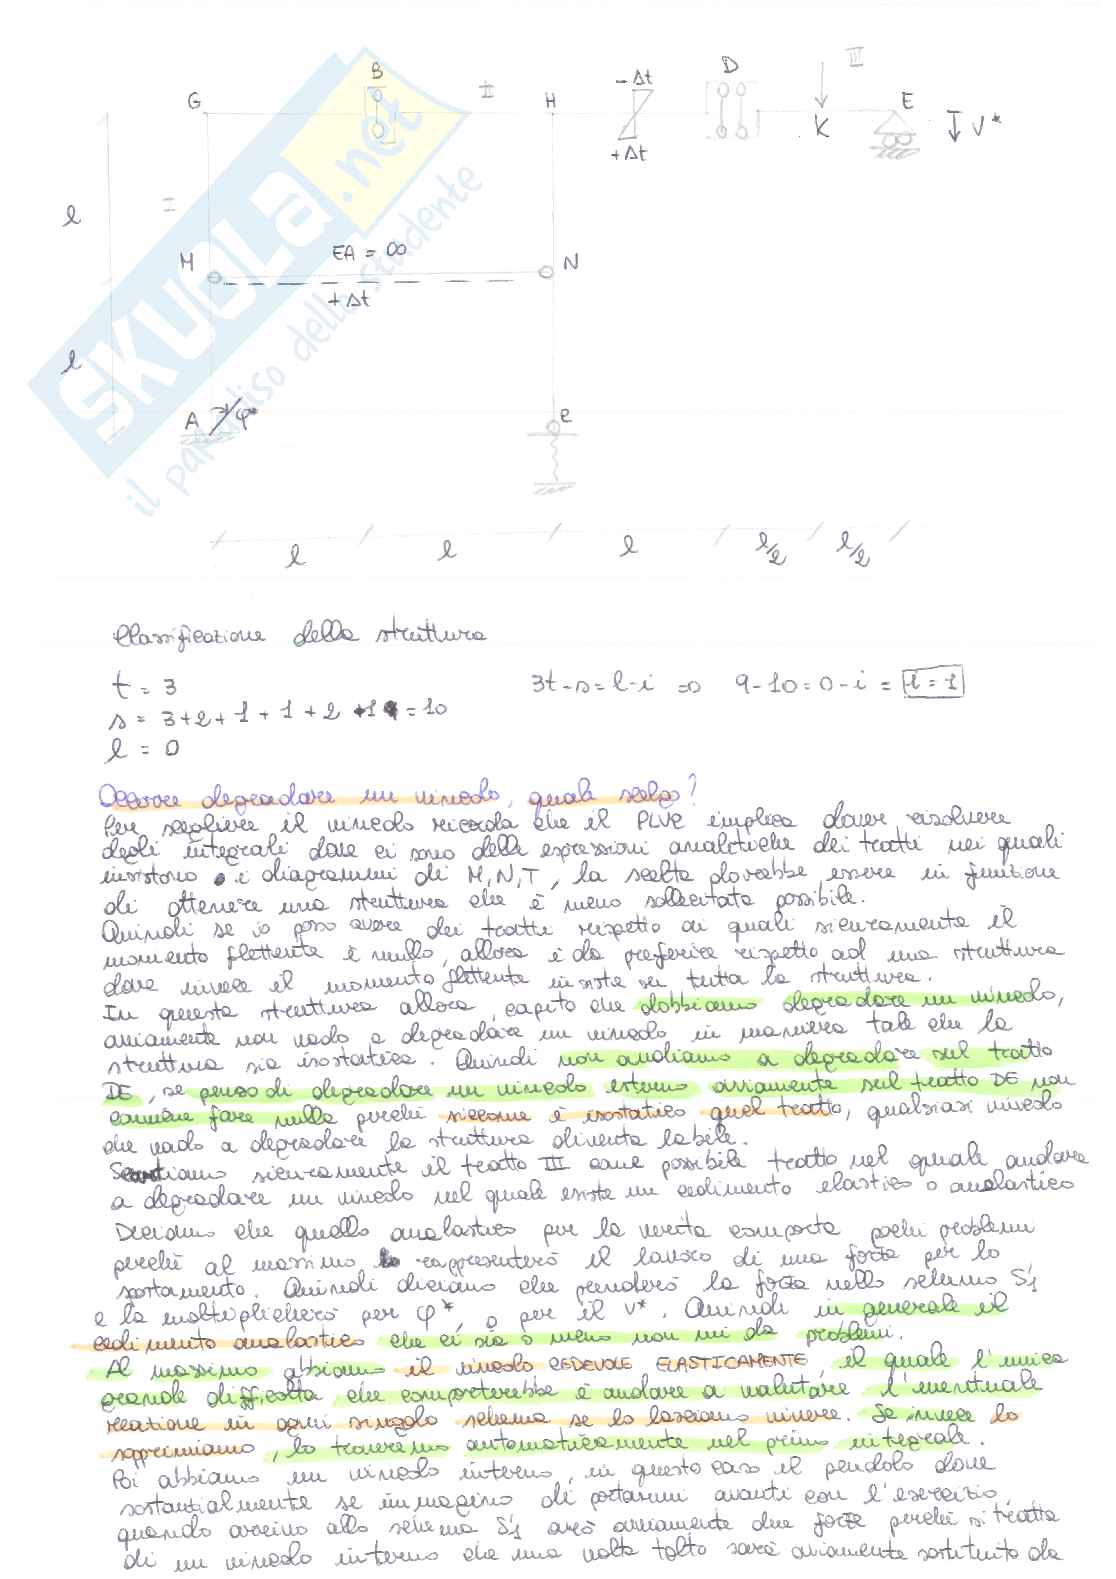 B
II
- Δt
D
III
G
H
E
K
V*
+Δt
l
I
EA = ∞
M
N
+Δt
l
A
φ*
C
l
l
l
l/2
l/2
SKUOLA.net
il paradiso dello studente
Classificazione della struttura
t = 3
3t-s=l-i => 9-10=0-i = i=1
s = 3+2+1+1+2+1=10
l = 0
Occorre degradare un vincolo, quale scelgo?
Per scegliere il vincolo ricorda che il PLVR implica dover risolvere
degli integrali dove ci sono delle espressioni analitiche dei tratti nei quali
insistono i diagrammi di M,N,T, la scelta dovrebbe essere in funzione
di ottenere una struttura che è meno sollecitata possibile.
Quindi se io posso avere dei tratti rispetto ai quali sicuramente il
momento flettente è nullo, allora è da preferire rispetto ad una struttura
dove invece il momento flettente insiste su tutta la struttura.
In questa struttura allora, capito che dobbiamo degradare un vincolo,
ovviamente non vado a degradare un vincolo in maniera tale che la
struttura sia isostatica. Quindi non andiamo a degradare sul tratto
DE, se penso di degradare un vincolo esterno ovviamente sul tratto DE non
conviene fare nulla perchè siccome è isostatico quel tratto, qualsiasi vincolo
che vado a degradare la struttura diventa labile.
Scartiamo sicuramente il tratto III come possibile tratto nel quale andare
a degradare un vincolo nel quale esiste un cedimento elastico o anelastico
Diciamo che quello anelastico per la verità comporta pochi problemi
perchè al massimo rappresenterà il lavoro di una forza per lo
spostamento. Quindi diciamo che prenderò la forza nello schema S1
e la moltiplicherò per φ*, o per il v*. Quindi in generale il
cedimento anelastico che ci sia o meno non mi dà problemi.
Al massimo abbiamo il vincolo CEDEVOLE ELASTICAMENTE, il quale l'unica
grande difficoltà che comporterebbe è andare a valutare l'eventuale
reazione in ogni singolo schema se lo lasciamo vivere. Se invece lo
sopprimiamo, lo troveremo automaticamente nel primo integrale.
Poi abbiamo un vincolo interno, in questo caso il pendolo dove
sostanzialmente se immagino di portarmi avanti con l'esercizio,
quando arrivo allo schema S1 avrò ovviamente due forze perchè si tratta
di un vincolo interno che una volta tolto sarà ovviamente sostituito da